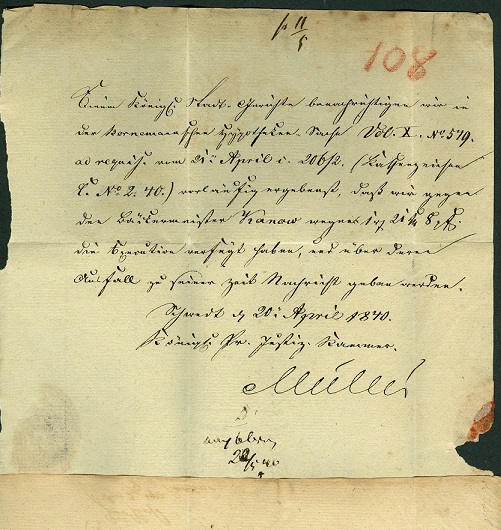 pr 11/5
108
Einem Königl: Stadt-Gerichte benachrichtigen wir in
der Bornemannschen Hypotheken-Sache Vol. X. No 579.
ad requis. vom 21t April c. (Kassenzeichen
No 2. 40.) vorläufig ergebenst, daß wir gegen
den Bäckermeister Kanow wegen 1 21 8
die Execution verfügt haben, und über deren
Ausfall zu seiner Zeit Nachricht geben werden.
Schwedt d 20t April 1840.
Königl: Pr. Justiz-Kammer.
Müller